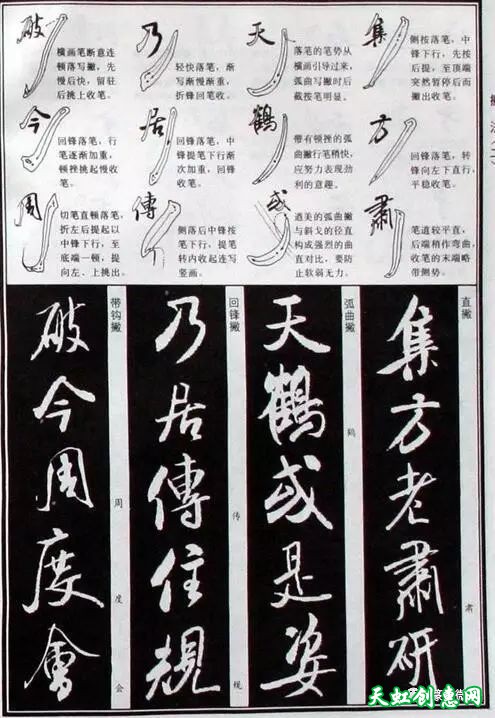 集
侧按落笔，中
锋下行，先按
后提，至顶端
突然暂停后而
撇出收笔。
天
落笔的笔势从
横画引导过来，
弧曲写撇时后
截按笔明显。
乃
轻快落笔，渐
写渐慢渐重，
折锋回笔收。
破
横画笔断意连
顿落写撇，先
慢后快，留驻
后挑上收笔。
方
回锋落笔，转
锋向左下直行，
平稳收笔。
鹤
带有顿挫的弧
曲撇行笔稍快，
应努力表现劲
利的意趣。
居
回锋落笔，中
锋提笔下行渐
次加重，回锋
收笔。
今
回锋落笔，行
笔逐渐加重，
顿挫挑起慢收
笔。
肅
笔道较平直，
后端稍作弯曲，
收笔的末端略
带侧势。
或
遒美的弧曲撇
与斜戈的径直
构成强烈的曲
直对比，要防
止软弱无力。
傳
侧落后中锋按
笔下行，提笔
转内收起连写
竖画。
周
切笔直顿落笔，
折左后提起以
中锋下行，至
底端一顿，提
向左、上挑出。
直撇
集方老肅研
肃
弧曲撇
天鶴或是姿
鹤
回锋撇
乃居傳住規
传
规
带钩撇
破今周度會
周
度
会
天虹创意网